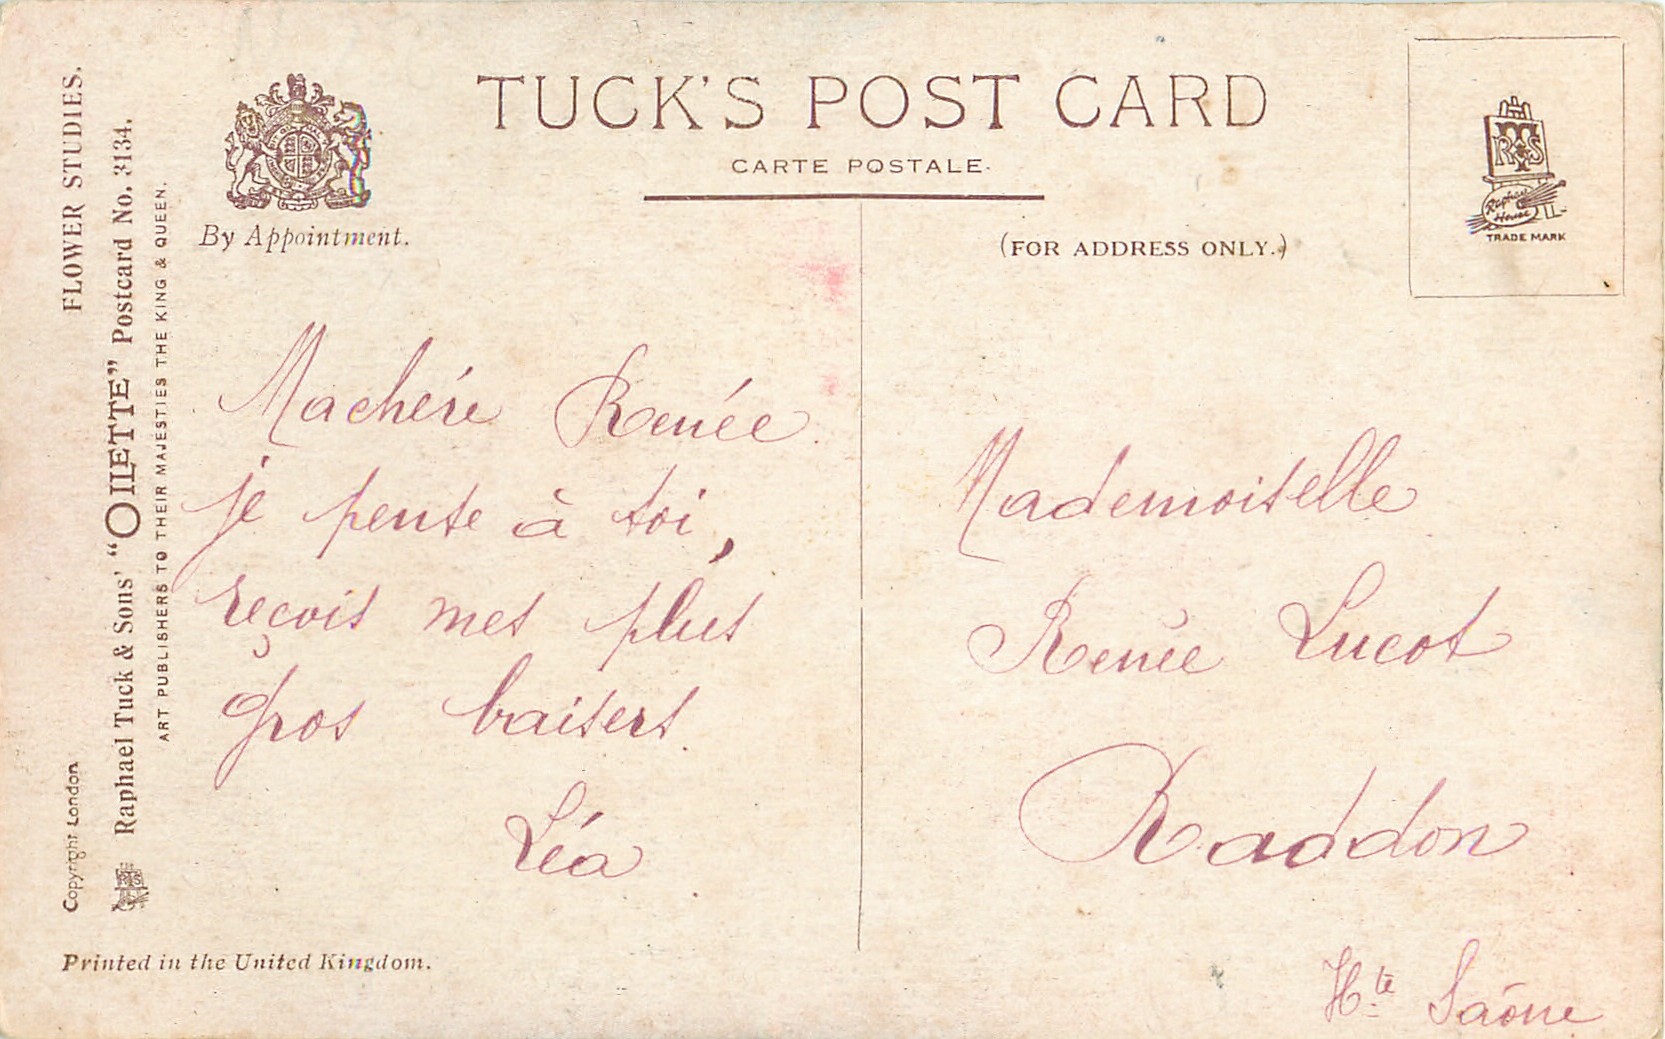 TUCK'S POST CARD
CARTE POSTALE.
By Appointment.
(FOR ADDRESS ONLY.)
RTS
Raphael House
TRADE MARK
FLOWER STUDIES.
Raphael Tuck & Sons' "OILETTE" Postcard No. 3134.
ART PUBLISHERS TO THEIR MAJESTIES THE KING & QUEEN.
Copyright London
Machére Renée
je pense à toi,
reçois mes plus
gros baisers.
Léa
Mademoiselle
Renée Lucot
Raddon
Hte Saône
Printed in the United Kingdom.